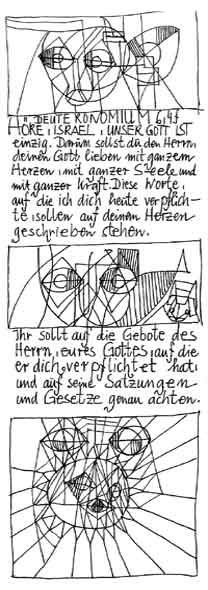 DEUTE RONOMIUM 6,4f
HÖRE, ISRAEL, UNSER GOTT IST
einzig. Darum sollst du den Herrn,
deinen Gott lieben mit ganzem
Herzen, mit ganzer Seele und
mit ganzer Kraft. Diese Worte,
auf die ich dich heute verpflich-
te, sollen auf deinem Herzen
geschrieben stehen.
Ihr sollt auf die Gebote des
Herrn, eures Gottes, auf die
er dich verpflichtet hat,
und auf seine Satzungen
und Gesetze genau achten.